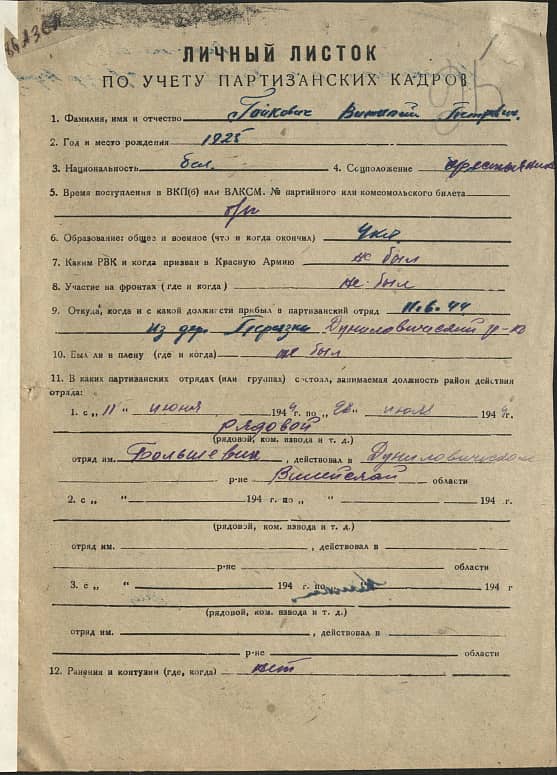 ЛИЧНЫЙ ЛИСТОК
ПО УЧЕТУ ПАРТИЗАНСКИХ КАДРОВ
1. Фамилия, имя и отчество Гойкович Виталий Петрович.
2. Год и место рождения 1925
3. Национальность бел. 4. Соцположение крестьянин
5. Время поступления в ВКП(б) или ВЛКСМ. № партийного или комсомольского билета
б/п
6. Образование: общее и военное (что и когда окончил) 4 кл
7. Каким РВК и когда призван в Красную Армию не был
8. Участие на фронтах (где и когда) не был
9. Откуда, когда и с какой должности прибыл в партизанский отряд 11.6.44
из дер. Дуниловический р-но
10. Был ли в плену (где и когда) не был
11. В каких партизанских отрядах (или группах) состоял, занимаемая должность район действия
отряда:
1. с „ 11 " июня 1944 г. по „ " июля 1944 г.
рядовой
(рядовой, ком. взвода и т. д.)
отряд им. Большевик, действовал в Дуниловическом
р-не Вилейской области
2. с „ " 194 г. по „ " 194 г.
(рядовой, ком. взвода и т. д.)
отряд им. , действовал в
р-не области
3. с „ " 194 г. по 194 г
(рядовой, ком. взвода и т. д.)
отряд им. , действовал в
р-не области
12. Ранения и контузии (где, когда) нет